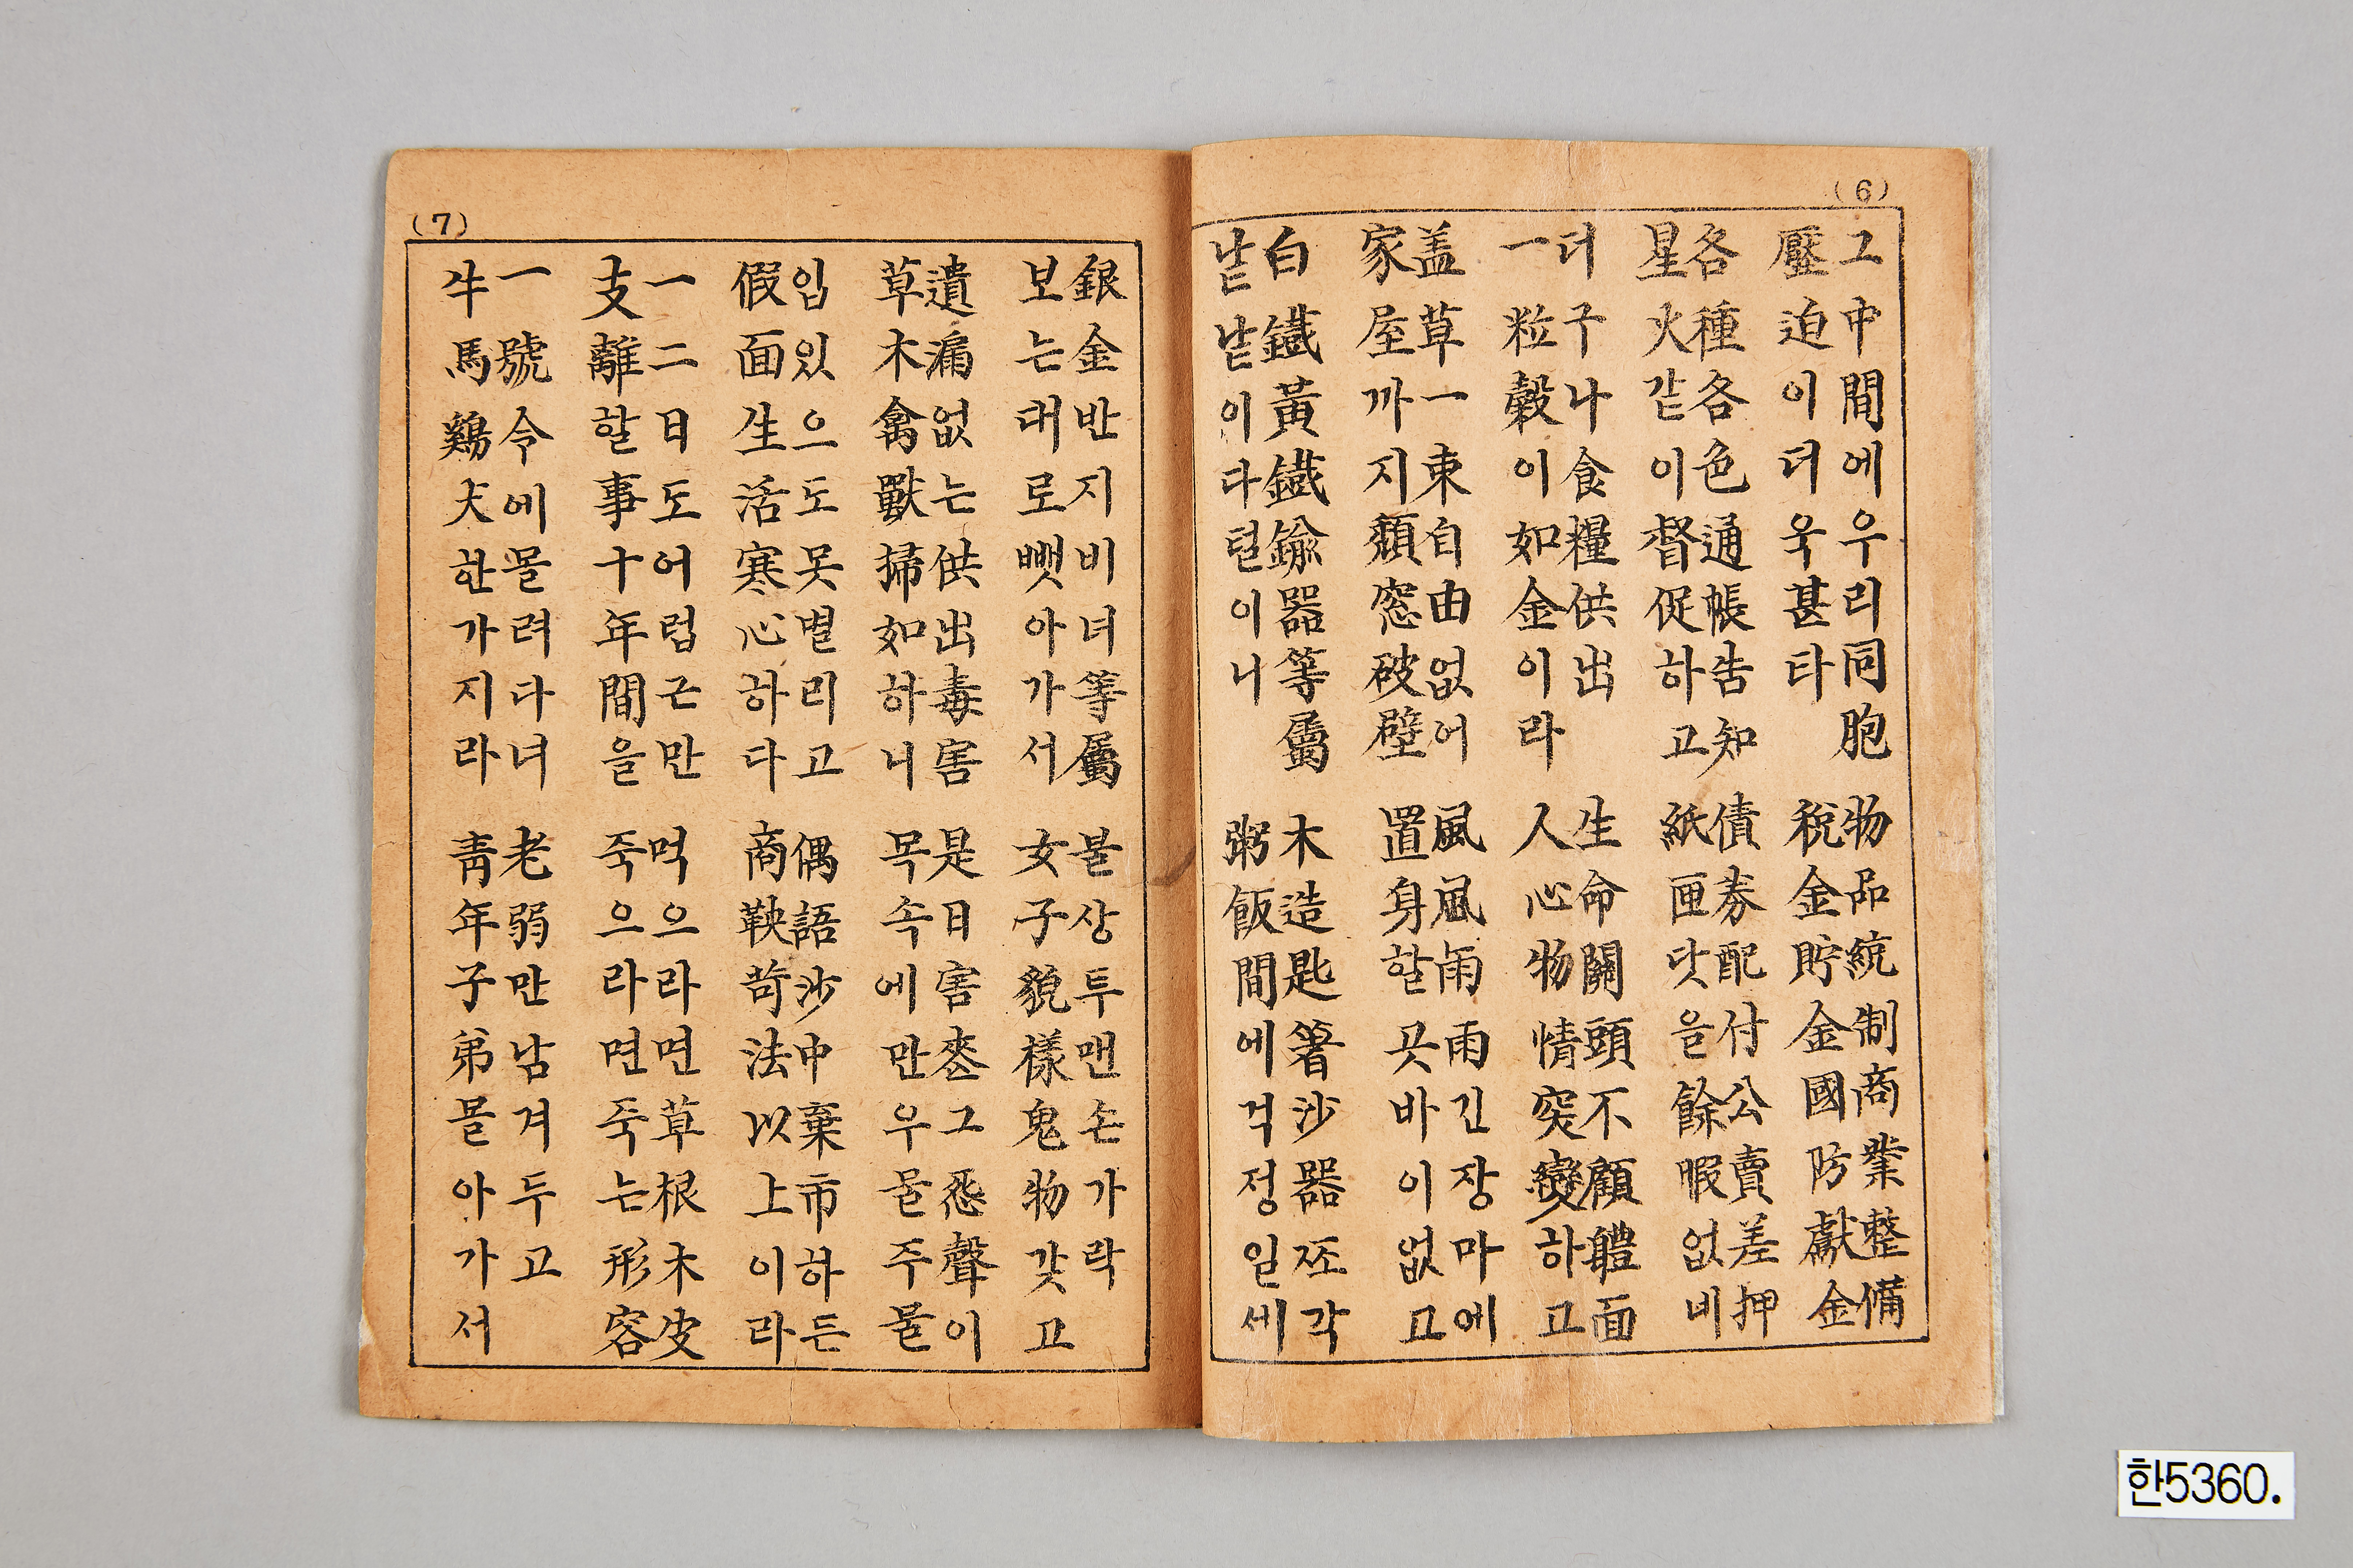 (6)
그中間에우리同胞
壓迫이더욱甚타
物品統制商業整備
稅金貯金國防獻金
各種各色通帳告知
星火같이督促하고
債券配付公賣差押
紙匣닷을餘暇없네
더구나食糧供出
一粒穀이如金이라
生命關頭不顧體面
人心物情突變하고
盖草一束自由없어
家屋까지頹窓破壁
風風雨雨긴장마에
置身할곳바이없고
白鐵黃鐵鍮器等屬
낱낱이다털이니
木造匙箸沙器쪼각
粥飯間에걱정일세
(7)
銀金반지비녀等屬
보는대로뺏아가서
불상투맨손가락
女子貌樣鬼物갓고
遺漏없는供出毒害
草木禽獸掃如하니
是日害喪그怨聲이
목속에만우물주물
입있으도못별리고
假面生活寒心하다
偶語沙中棄市하든
商鞅苛法以上이라
一二日도어럽근만
支離할事十年間을
먹으라면草根木皮
죽으라면죽는形容
一號令에몰려다녀
牛馬鷄犬한가지라
老弱만남겨두고
靑年子弟몰아가서
한5360.